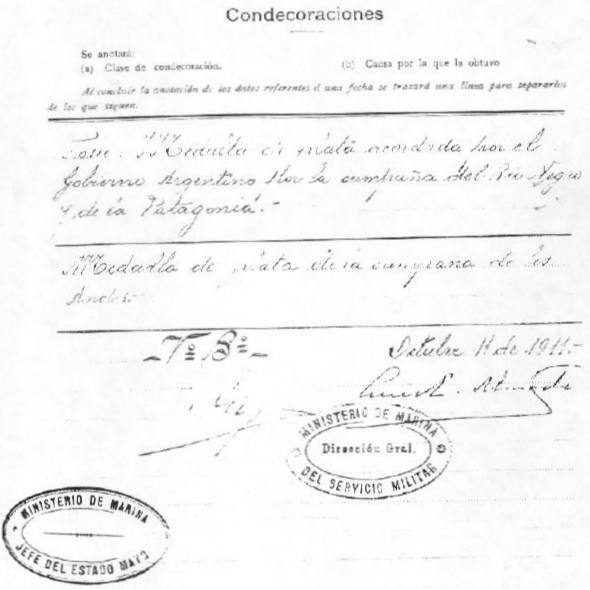 Condecoraciones
Se anotará:
(a) Clase de condecoración. (b) Causa por la que la obtuvo
Al concluir la anotación de los datos referentes á una fecha se trazará una línea para separarlos
de los que siguen.
Posee Medalla de plata acordada por el
Gobierno Argentino Por la campaña del Río Negro
y de la Patagonia.-
Medalla de plata de la campaña de los
Andes.-
Vº Bº
Octubre 11 de 1911.-
MINISTERIO DE MARINA
Dirección Gral.
DEL SERVICIO MILITAR
MINISTERIO DE MARINA
JEFE DEL ESTADO MAYO